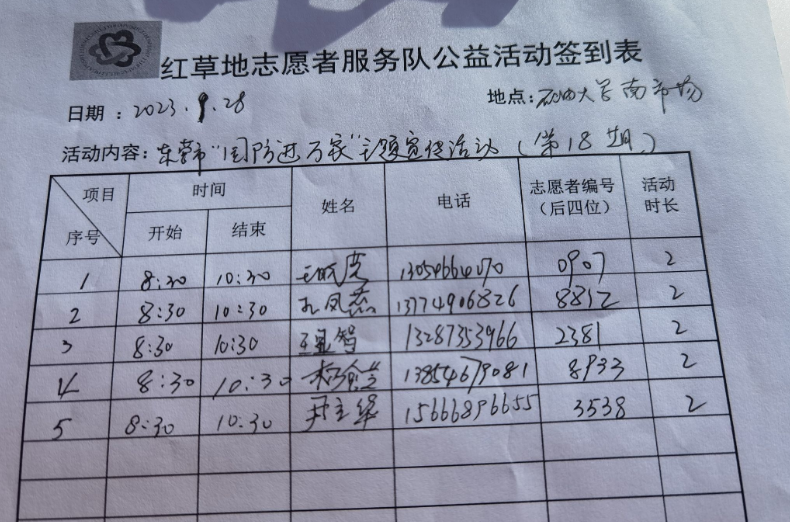 红草地志愿者服务队公益活动签到表
日期：2023.9.28 地点：石油大学南市场
活动内容：东营市"国防进万家"主题宣传活动（第18期）
项目 时间 姓名 电话 志愿者编号（后四位） 活动时长
序号 开始 结束
1 8:30 10:30 13054664070 0907 2
2 8:30 10:30 孔凤燕 13774906826 8812 2
3 8:30 10:30 王显智 13287353966 2381 2
4 8:30 10:30 13854679081 8933 2
5 8:30 10:30 15666896655 3538 2